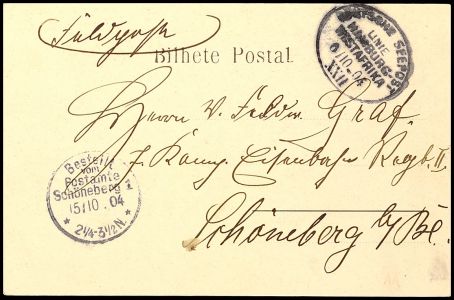 Feldpost
Bilhete Postal
DEUTSCHE SEEPOST
LINIE
HAMBURG-
WESTAFRIKA
6/10-04
XXVII
Herrn V. Feldw. Graf.
7. Komp. Eisenbahn Regt. II.
Schöneberg b/Bl.
Bestellt
vom
Postamte 1
Schöneberg
15/10.04
* 2¼-3½N. *